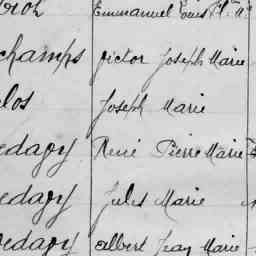 Emmanuel Louis
champs Victor Joseph Marie
los Joseph Marie
edagy René Pierre Marie
edagy Jules Marie
edagy Albert Jean Marie